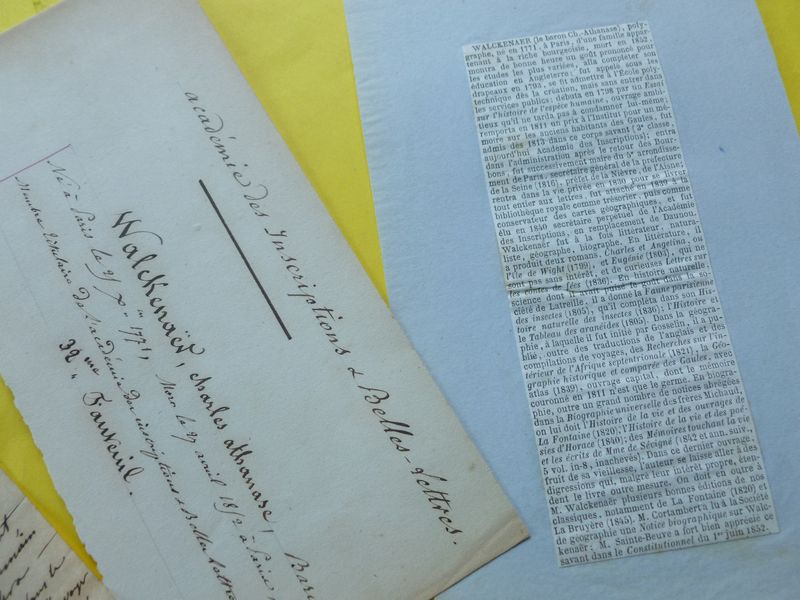 académie des Inscriptions & Belles-Lettres.
Walckenaër, charles athanase, Bar
Né à Paris le 25 Xbre 1771, Mort le 27 avril 1852 à Paris
Membre titulaire de l'académie des inscriptions & Belles lettres
32me Fauteuil.
WALCKENAER (le baron Ch.-Athanase), poly-
graphe, né en 1771, à Paris, d'une famille appar-
tenant à la riche bourgeoisie, mort en 1852,
montra de bonne heure un goût prononcé pour
les études les plus variées, alla compléter son
éducation en Angleterre; fut appelé sous les
drapeaux en 1793, se fit admettre à l'École poly-
technique dès la création, mais sans entrer dans
les services publics; débuta en 1798 par un Essai
sur l'histoire de l'espèce humaine, ouvrage ambi-
tieux qu'il ne tarda pas à condamner lui-même;
remporta en 1811 en prix à l'Institut pour un mé-
moire sur les anciens habitants des Gaules, fut
admis dès 1813 dans ce corps savant (3e classe,
aujourd'hui Académie des Inscriptions); entra
dans l'administration après le retour des Bour-
bons, fut successivement maire du 5e arrondisse-
ment de Paris, secrétaire général de la préfecture
de la Seine (1816), préfet de la Nièvre, de l'Aisne,
rentra dans la vie privée en 1830 pour se livrer
tout entier aux lettres, fut attaché en 1839 à la
bibliothèque royale comme trésorier, puis comme
conservateur des cartes géographiques, et fut
élu en 1840 secrétaire perpétuel de l'Académie
des Inscriptions, en remplacement de Daunou.
Walckenaer fut à la fois littérateur, natura-
liste, géographe, biographe. En littérature, il
a produit deux romans, Charles et Angelina, ou
l'île de Wight (1799), et Eugénie (1803), qui ne
sont pas sans intérêt, et de curieuses Lettres sur
les contes de fées (1826). En histoire naturelle,
science dont il avait pris le goût dans la so-
ciété de Latreille, il a donné la Faune parisienne
des insectes (1805), qu'il compléta dans son His-
toire naturelle des insectes (1836); l'Histoire et
le Tableau des aranéides (1805). Dans la géogra-
phie, à laquelle il fut initié par Gosselin, il a pu-
blié, outre des traductions de l'anglais et des
compilations de voyages, des Recherches sur l'in-
térieur de l'Afrique septentrionale (1821), la Géo-
graphie historique et comparée des Gaules, avec
atlas (1839), ouvrage capital, dont le mémoire
couronné en 1811 n'était que le germe. En biogra-
phie, outre un grand nombre de notices abrégées
dans la Biographie universelle des frères Michaud,
on lui doit l'Histoire de la vie et des ouvrages de
La Fontaine (1820); l'Histoire de la vie et des poé-
sies d'Horace (1840); des Mémoires touchant la vie
et les écrits de Mme de Sévigné (1842 et ann. suiv.,
5 vol. in-8, inachevé). Dans ce dernier ouvrage,
fruit de sa vieillesse, l'auteur se laisse aller à des
digressions qui, malgré leur intérêt propre, éten-
dent le livre outre mesure. On doit en outre à
M. Walckenaer plusieurs bonnes éditions de nos
classiques, notamment de La Fontaine (1826) et
La Bruyère (1845). M. Cortambert a lu à la Société
de géographie une Notice biographique sur Walc-
kenaer; M. Sainte-Beuve a fort bien apprécié ce
savant dans le Constitutionnel du 1er juin 1852.